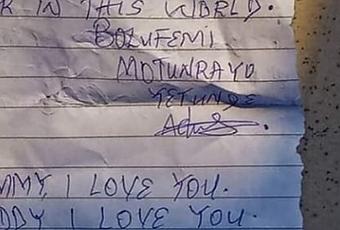 K IN THIS WORLD.
BOLUFEMI
MOTUNRAYO
YETUNDE
MMY, I LOVE YOU.
DDY I LOVE YOU.